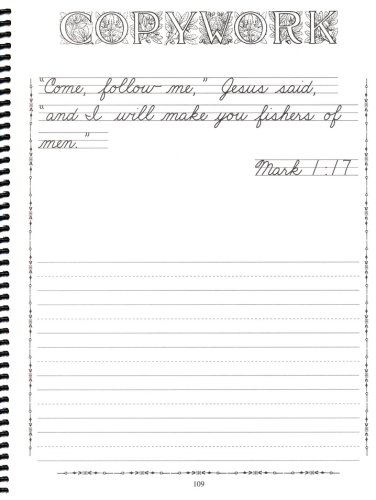 COPYWORK
"Come, follow me," Jesus said,
"and I will make you fishers of
men."
Mark 1:17
109